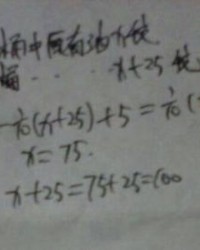 桶中原有油x
x+25
1/10(x+25)+5=1/10(
x=75.
x+25=75+25=100